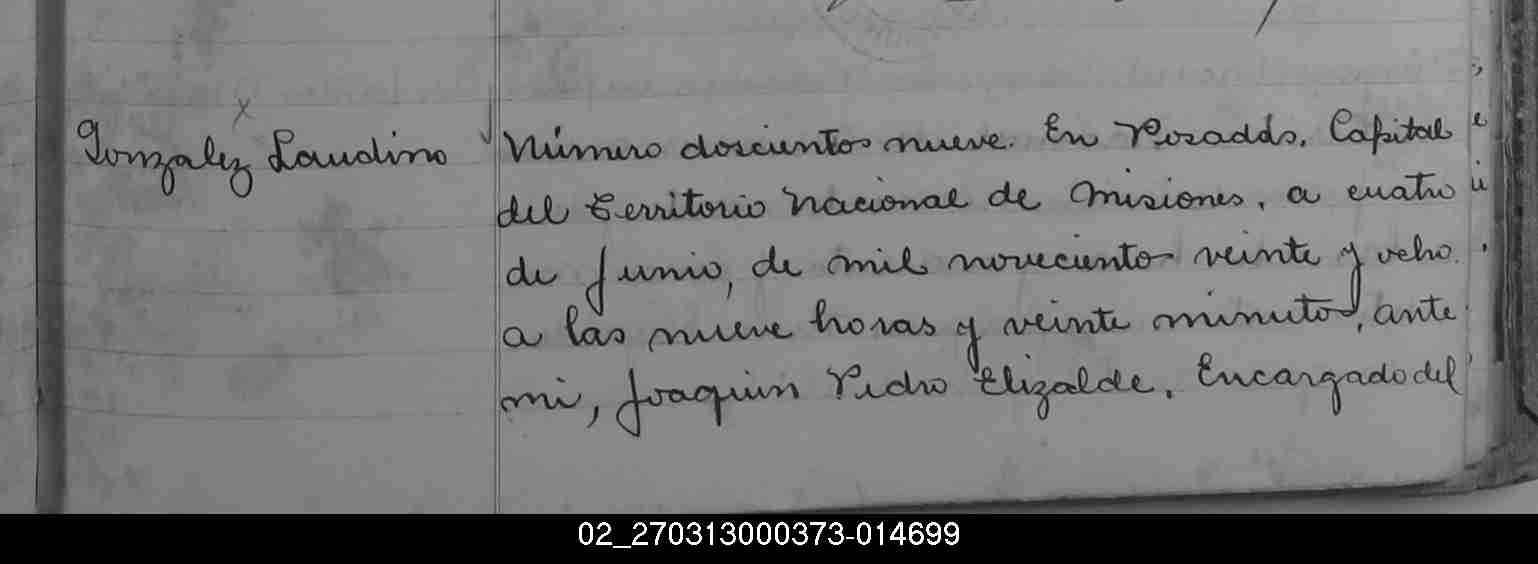 Gonzalez Laudino
Número doscientos nueve. En Posadas, Capital
del Territorio Nacional de Misiones, a cuatro
de Junio, de mil noveciento veinte y ocho.
a las nueve horas y veinte minutos, ante
mi, Joaquin Pedro Elizalde, Encargado del
02_270313000373-014699